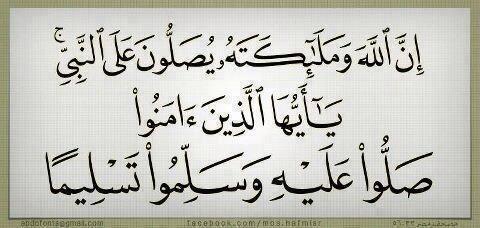 إِنَّ ٱللَّهَ وَمَلَٰٓئِكَتَهُۥ يُصَلُّونَ عَلَى ٱلنَّبِىِّ ۚ
يَٰٓأَيُّهَا ٱلَّذِينَ ءَامَنُوا۟
صَلُّوا۟ عَلَيْهِ وَسَلِّمُوا۟ تَسْلِيمًا
abdofonts@gmail.com facebook.com/mos.hafmisr مصحف مصر ٥٦:٣٣